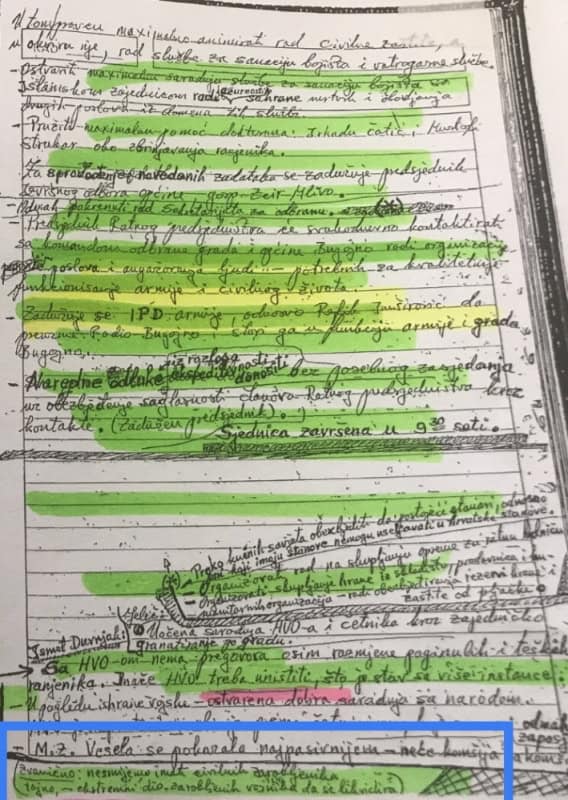 maksimalno animirati rad civilne zaštite, a
u okviru nje, rad službe za sanaciju bojišta i vatrogasne službe.
- Ostvariti maximalnu saradnju službe za sanaciju bojišta sa
Islamskom zajednicom radi ažurnosti sahrane mrtvih i obavljanja
drugih poslova iz domena ove službe.
- Pružiti maximalnu pomoć doktorima:
oko zbrinjavanja ranjenika.
Za sprovođenje navedenih zadataka se zadužuje predsjednik
Izvršnog odbora općine gosp. Zeir Mlivo.
- Odmah pokrenuti rad Sekretarijata za odbranu.
- Predsjednik Ratnog predsjedništva će svakodnevno kontaktirati
sa komandom odbrane grada i općine Bugojno radi organizacije
poslova i angažovanja ljudi - potrebnih za kvalitetnije
funkcionisanje armije i civilnog života.
- Zadužuje se IPD armije, odnosno da
preuzme Radio-Bugojno i stavi ga u funkciju armije i grada
Bugojno.
- Naredne odluke iz razloga ekspeditivnosti donositi bez posebnog zasjedanja
uz obezbjeđenje saglasnosti članova Ratnog predsjedništva kroz
kontakte. (Zadužen predsjednik).
Sjednica završena u 9 30 sati.
Preko kućnih savjeta obezbijediti da postojeći stanari, odnosno
oni koji imaju stanove nemogu useljavati u hrvatske stanove.
- Organizovati rad na skupljanju opreme za ratnu bolnicu
- Organizovati skupljanje hrane iz skladišta, prodavnica i
humanitarnih organizacija - radi obezbjeđivanja rezervi hrane i
zaštite od pljačke.
Uočena saradnja HVO-a i četnika kroz zajedničko
granatiranje po gradu.
Ismet Durnjak:
Sa HVO-om nema pregovora osim razmjene poginulih i teških
ranjenika. Inače HVO treba uništiti, što je stav se više instance.
- U pogledu ishrane vojske - ostvarena dobra saradnja sa narodom.
- M.Z. Vesela se pokazala najpasivnijom - neće komšija
zvanično: nesmijemo imat civilnih zarobljenika
tajno, - ekstremni dio zarobljenih vojnika da se likvidira